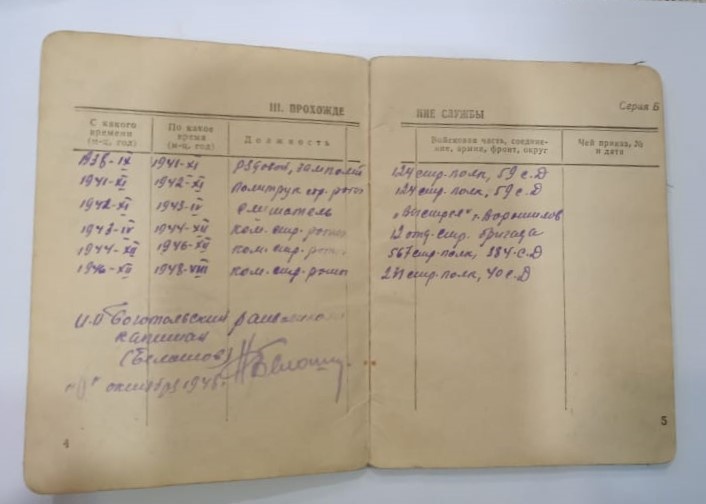 III. ПРОХОЖДЕ
НИЕ СЛУЖБЫ
Серия Б
С какого времени (м-ц, год)
По какое время (м-ц, год)
Должность
Войсковая часть, соединение, армия, фронт, округ
Чей приказ, № и дата
IX 1941-XI рядовой, 124 стр. полк, 59 с.Д
1941-XI 1942-XI Политрук стр. роты 124 стр. полк, 59 с.Д
1942-XI 1943-IV слушатель „Выстрел" г. Ворошилов
1943-IV 1944-XII ком. стр. роты 12 отд. стр. бригада
1944-XII 1946-XII ком. стр. роты 567 стр. полк, 384 с.Д
1946-XII 1948-VIII ком. стр. роты 231 стр. полк, 40 с.Д
Боготольский
капитан
октября 194
4
5